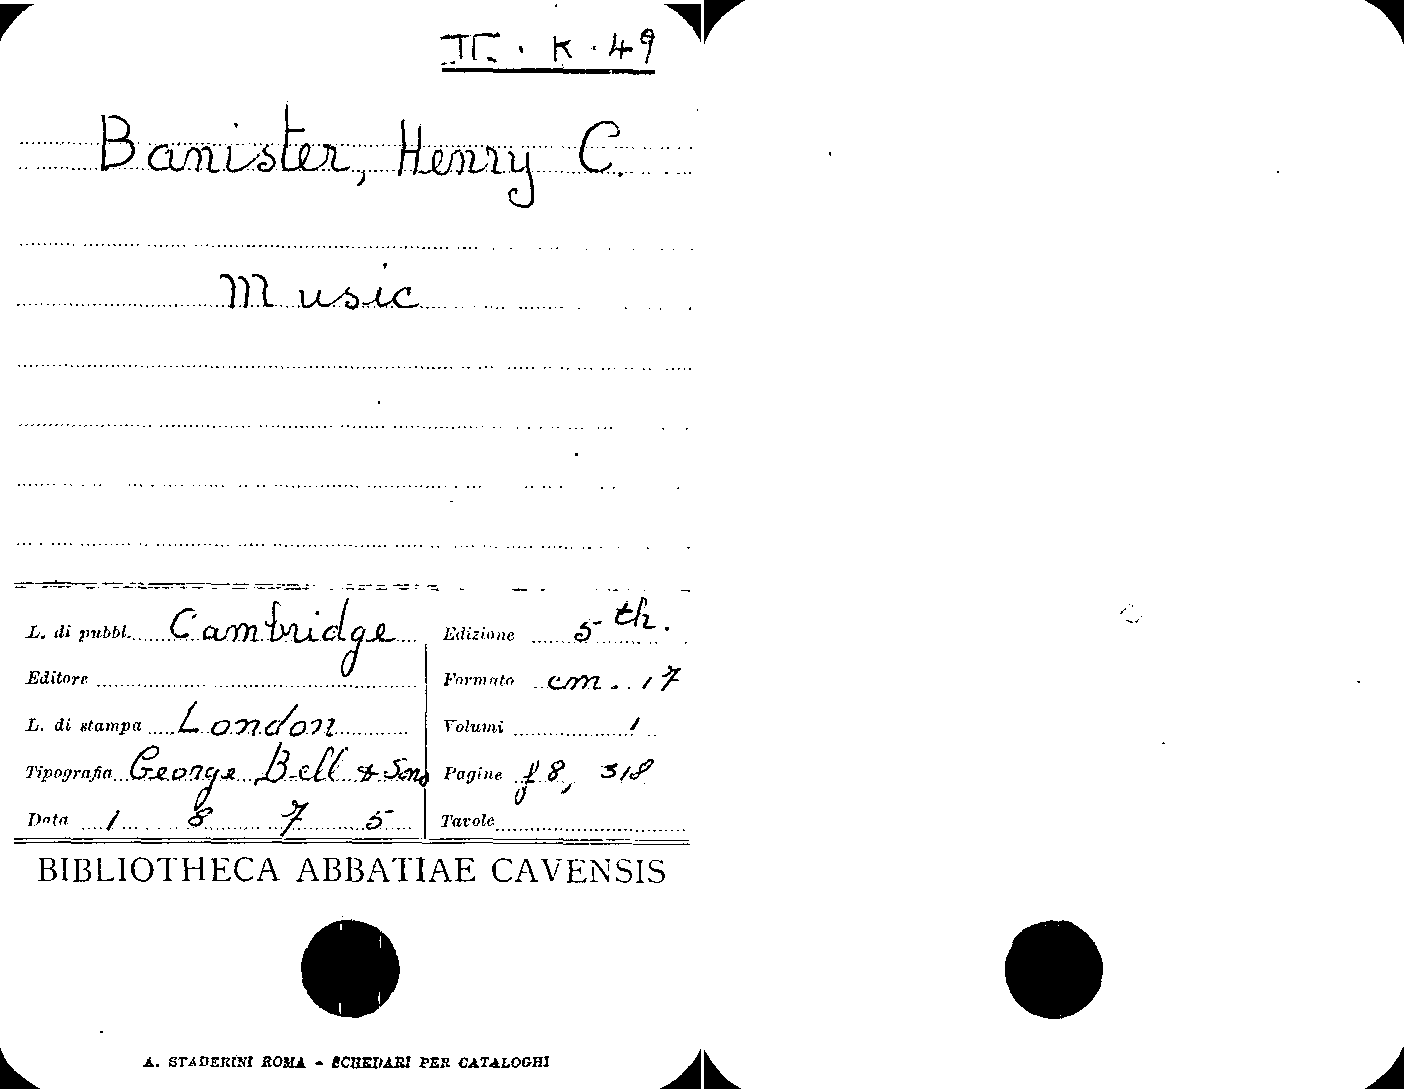 II. K. 49
Banister, Henry C.
Music
L. di pubbl. Cambridge
Edizione 5th.
Editore
Formato cm. 17
L. di stampa London
Volumi 1
Tipografia George Bell & Sons
Pagine f 8, 318
Data 1875
Tavole
BIBLIOTHECA ABBATIAE CAVENSIS
A. STADERINI ROMA - SCHEDARI PER CATALOGHI